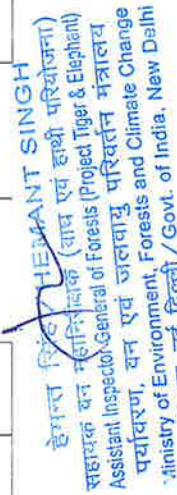 हेमन्त सिंह / HEMANT SINGH
सहायक वन महानिरीक्षक (बाघ एवं हाथी परियोजना)
Assistant Inspector General of Forests (Project Tiger & Elephant)
पर्यावरण, वन एवं जलवायु परिवर्तन मंत्रालय
Ministry of Environment, Forests and Climate Change
नई दिल्ली / Govt. of India, New Delhi